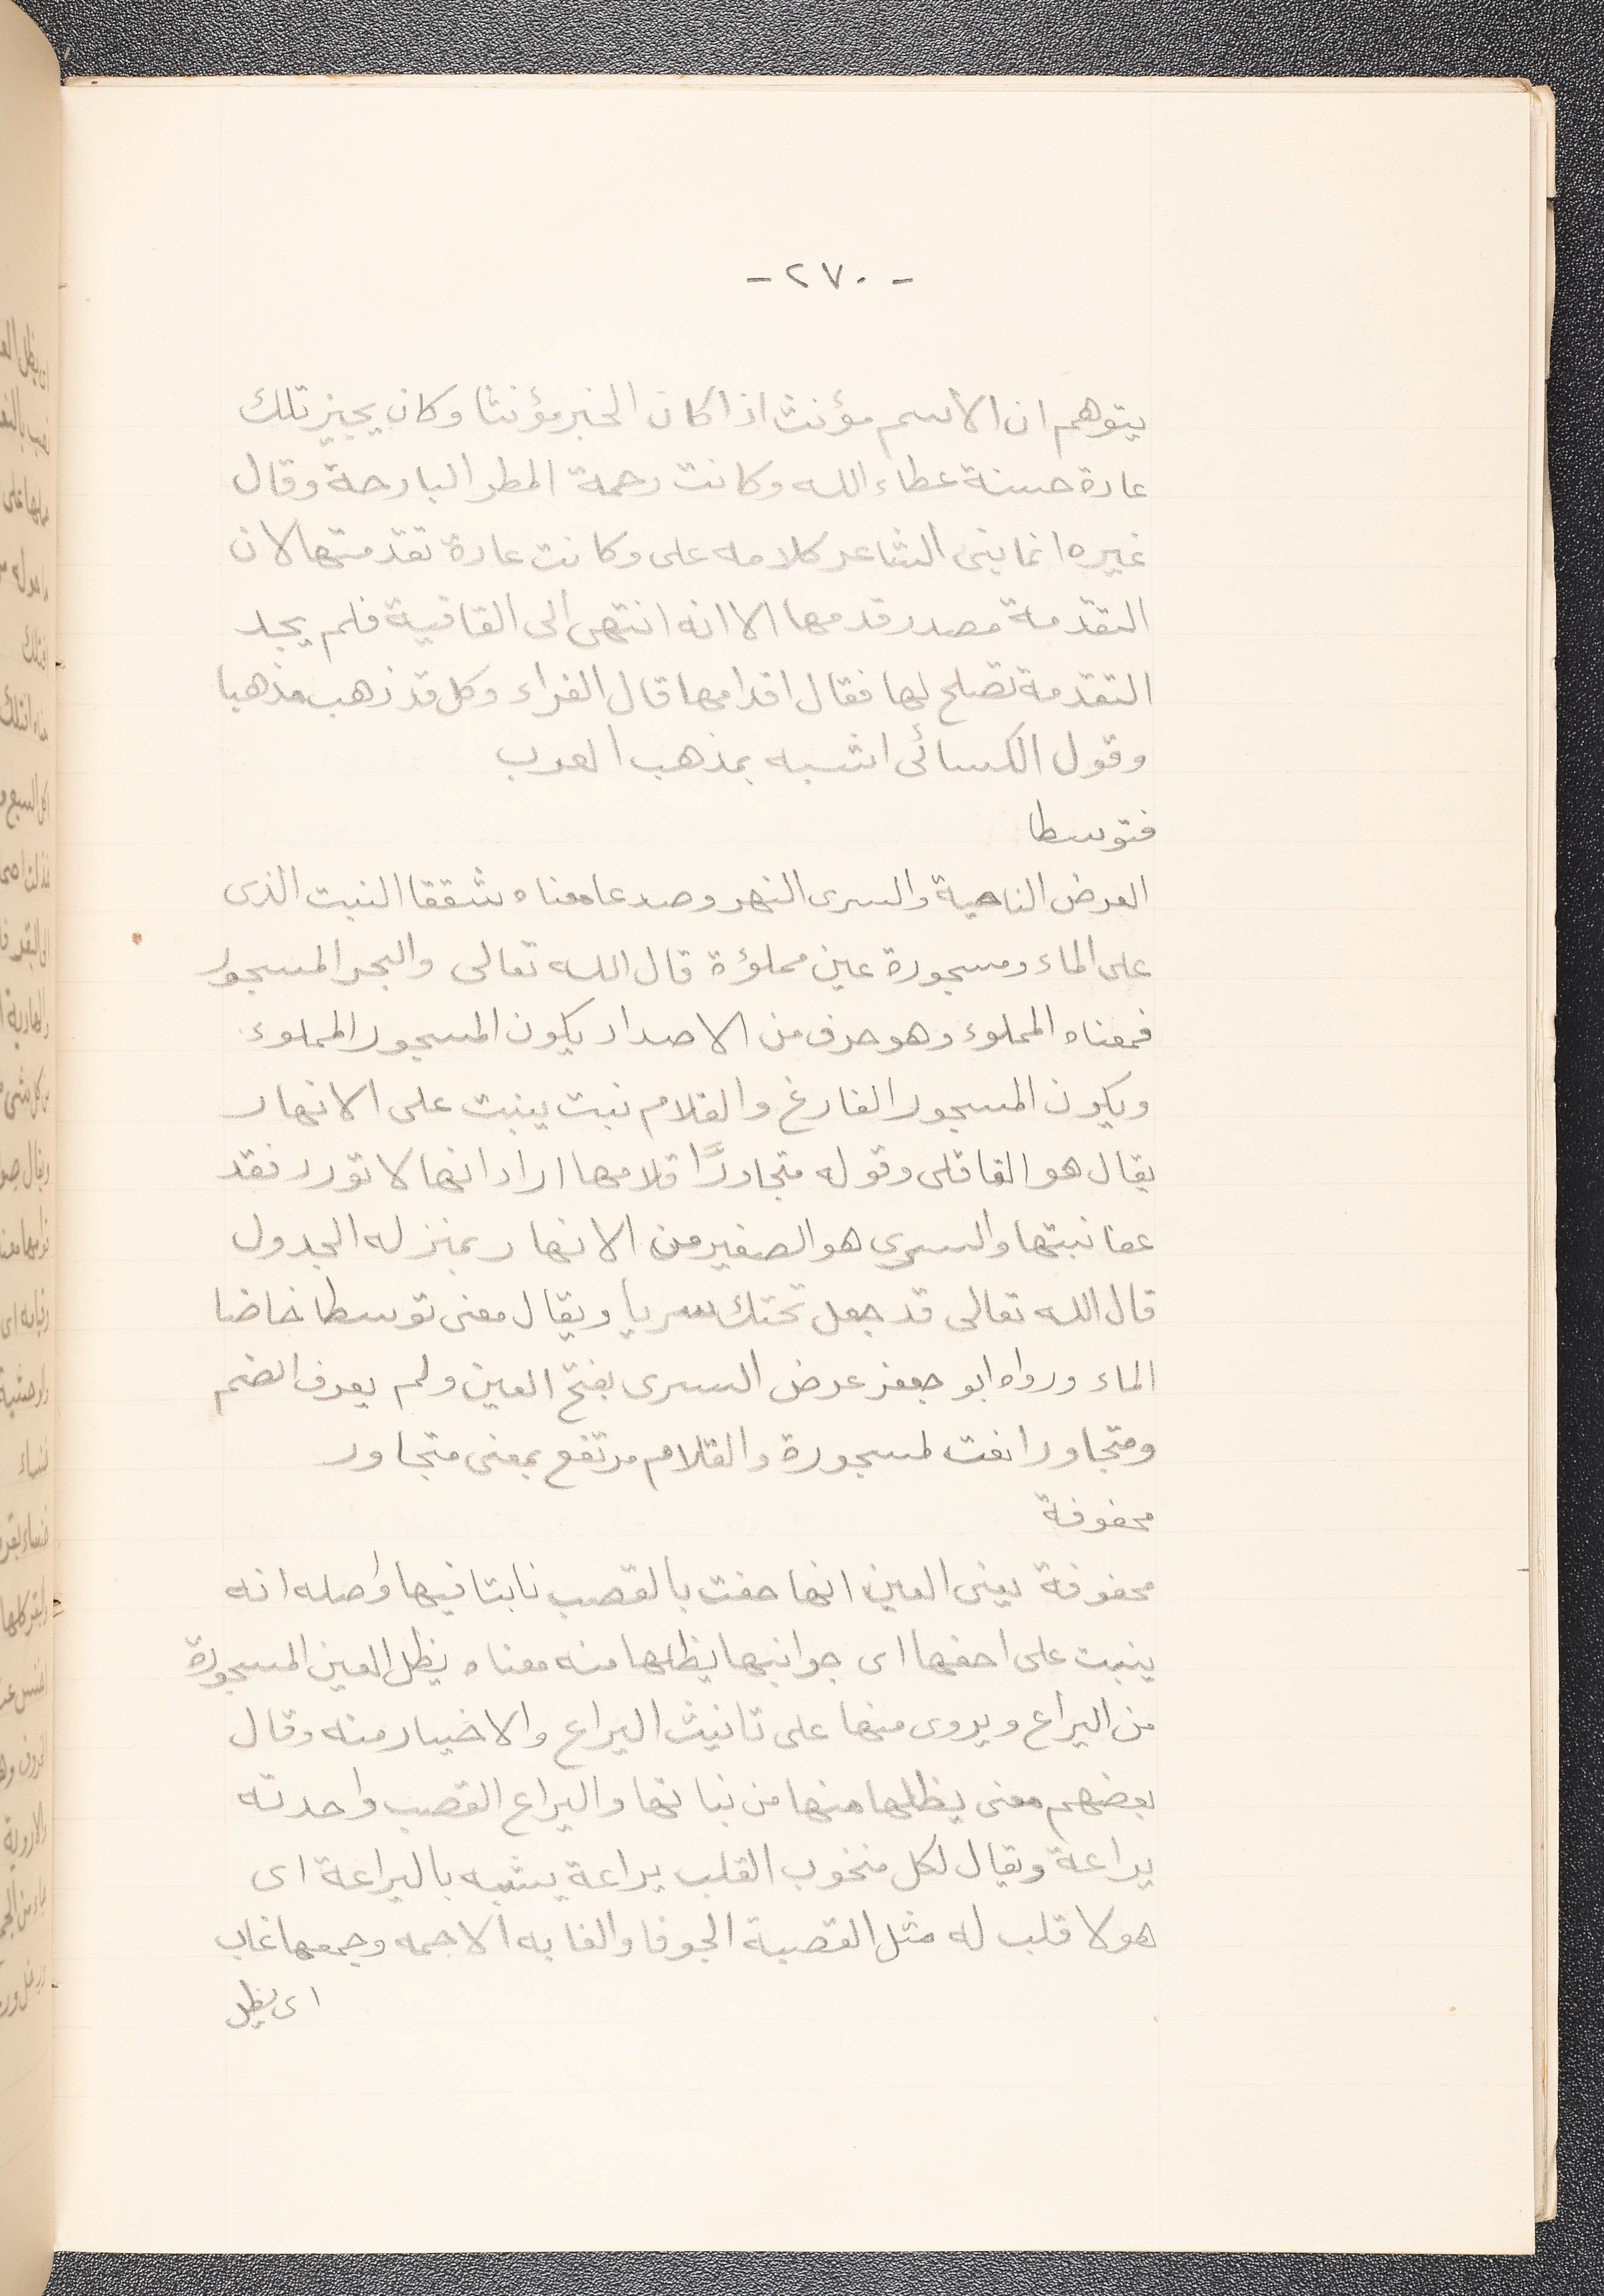 - ٢٧٠ -
يتوهم ان الاسم مؤنث اذا كان الخبر مؤنثا وكان يجيز تلك
عادة حسنة عطاء الله وكانت رحمة المطر البارحة وقال
غيره انما بنى الشاعر كلامه على وكانت عادة تقدمتها لان
التقدمة مصدر قدمها الا انه انتهى الى القافية فلم يجد
التقدمة تصلح لها فقال اقدامها قال الفراء وكل قد ذهب مذهبا
وقول الكسائى اشبه بمذهب العرب
فتوسطا
العرض الناحية والسرى النهر وصدعا معناه شققا النبت الذى
على الماء ومسجورة عين مملؤة قال الله تعالى والبحر المسجور
فمعناه المملوء وهو حرف من الاضداد يكون المسجور المملوء
ويكون المسجور الفارغ والقلام نبت ينبت على الانهار
يقال هو القاقلى وقوله متجاورًا قلامها اراد انها لا تورد فقد
عفا نبتها والسرى هو الصغير من الانهار بمنزله الجدول
قال الله تعالى قد جعل تحتك سريا ويقال معنى توسطا خاضا
الماء ورواه ابو جعفر عرض السرى بفتح العين ولم يعرف الضم
ومتجاورا نعت لمسجورة والقلام مرتفع بمعنى متجاور
محفوفة
محفوفة يعنى العين انها حفت بالقصب نابتا فيها واصله انه
ينبت على احفها اى جوانبها يظلها منه معناه يظل العين المسجورة
من اليراع ويروى منها على تانيث اليراع والاختيار منه وقال
بعضهم معنى يظلها منها من نباتها واليراع القصب واحدته
يراعة ويقال لكل منخوب القلب يراعة يشبه باليراعة اى
هو لا قلب له مثل القصبة الجوفا والغابه الاجمه وجمعها غاب
اى يظل